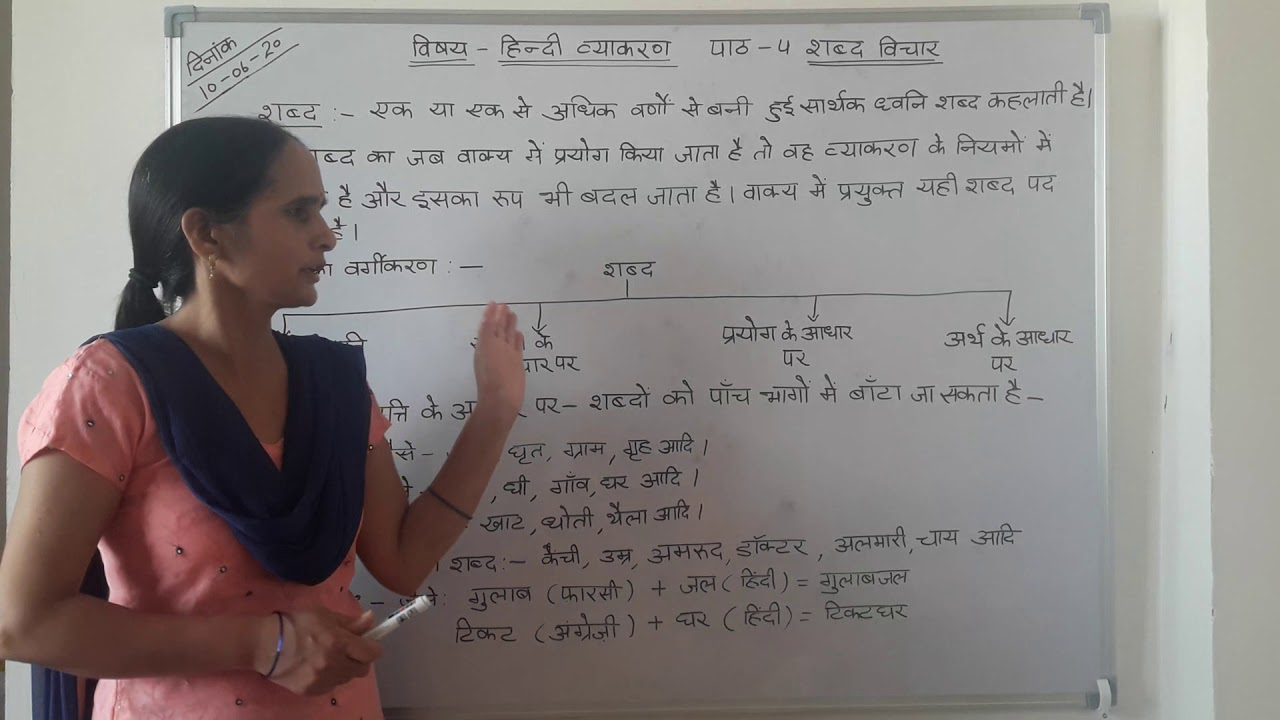 दिनांक
10-06-20
विषय - हिन्दी व्याकरण पाठ - 4 शब्द विचार
शब्द :- एक या एक से अधिक वर्णों से बनी हुई सार्थक ध्वनि शब्द कहलाती है।
का जब वाक्य में प्रयोग किया जाता है तो वह व्याकरण के नियमों में
है और इसका रुप भी बदल जाता है। वाक्य में प्रयुक्त यही शब्द पद
है।
वर्गीकरण : — शब्द
के प्रयोग के आधार अर्थ के आधार
पर पर पर
के पर - शब्दों को पाँच भागों में बाँटा जा सकता है -
घृत, ग्राम, गृह आदि।
, घी, गाँव, घर आदि।
खाट, धोती, थैला आदि।
शब्द :- कैंची, उम्र, अमरुद, डॉक्टर, अलमारी, चाय आदि
गुलाब (फारसी) + जल (हिंदी) = गुलाबजल
टिकट (अंग्रेज़ी) + घर (हिंदी) = टिकटघर